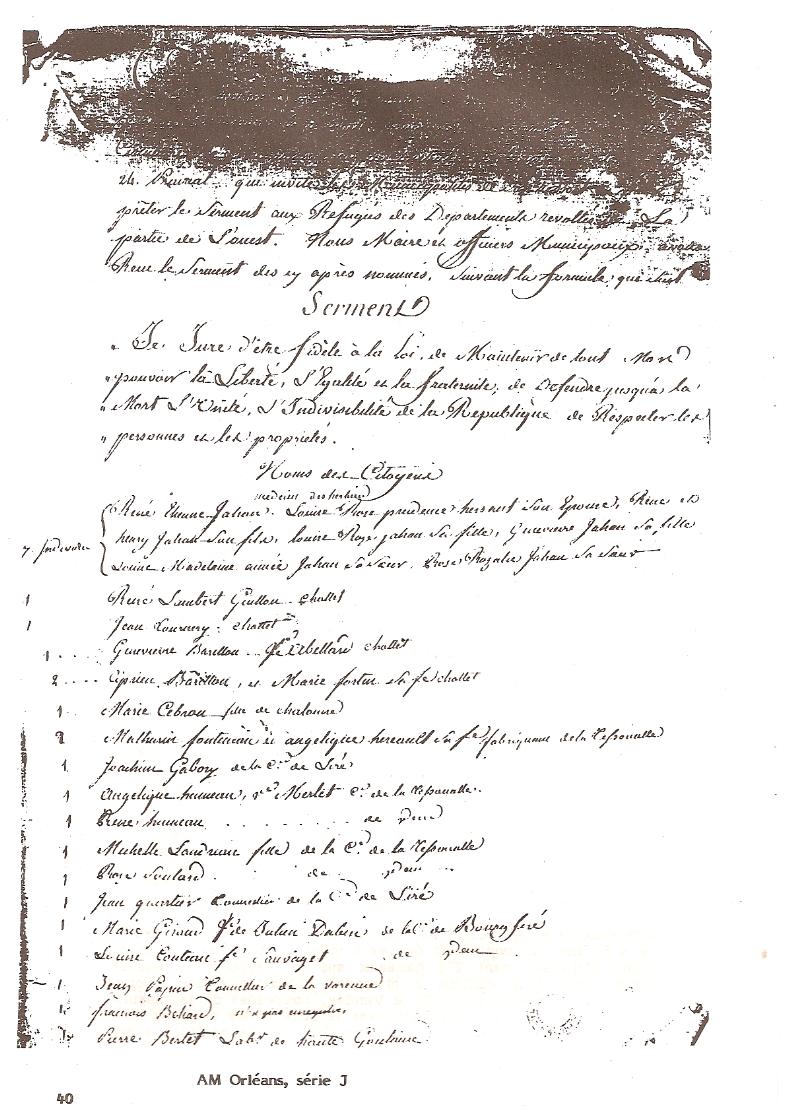 24. Prairial que invite les Municipalités de
prêter le Serment aux Refugiés des Departements revoltés de La
partie de L'ouest. Nous Maire et officiers Municipaux avons
Recu le Serment des cy après nommés. Suivant la formule que suit
Serment
" Je Jure d'être fidele à la Loi, de Maintenir de tout Mon
" pouvoir la Liberté, L'Egalité et la fraternité, de Defendre jusqu'à la
" Mort L'Unité, L'Indivisibilité de la Republique de Respecter les
" personnes et les proprietés.
Noms des Citoyens
medecin
7. René Etienne Jahan. Louise Rose prudence son Epouse, René et
henry Jahan Son fils, louise Rose jahan Sa fille, Genevieve Jahan Sa fille
Louise Madelaine aimée Jahan Sa Sœur, Rose Rosalie Jahan Sa Sœur
1 René Lambert Guitton chollet
1 Jean chollet
1.... Genevieve Barillon fe Abellard chollet
2.... Ciprien Barillon, et Marie fortin Sa fe chollet
1. Marie Cebron fille de chalonne
2 Mathurin fontenau et angelique hereault Sa fe fabriquant de la Tessoualle
1 Joachim Gabory de la Cne de Liré
1 Angelique humeau, ve Merlet Cne de la Tessoualle.
1 René humeau ........ de Idem
1 Michelle Landreau fille de la Cne de la Tessoualle
1 Rose Soulard de Idem
1 Jean quartier Tonnelier de la Cne de Liré
1 Marie Giraud fe de Julien de la Cne de Bourg
1 Louise Couteau fe Sauvaget de Idem
1 Jean Papin Tonnelier de la varenne
1. francois n'a pas
1. Pierre Bertet Labr de haute Goulaine
AM Orléans, série J
40